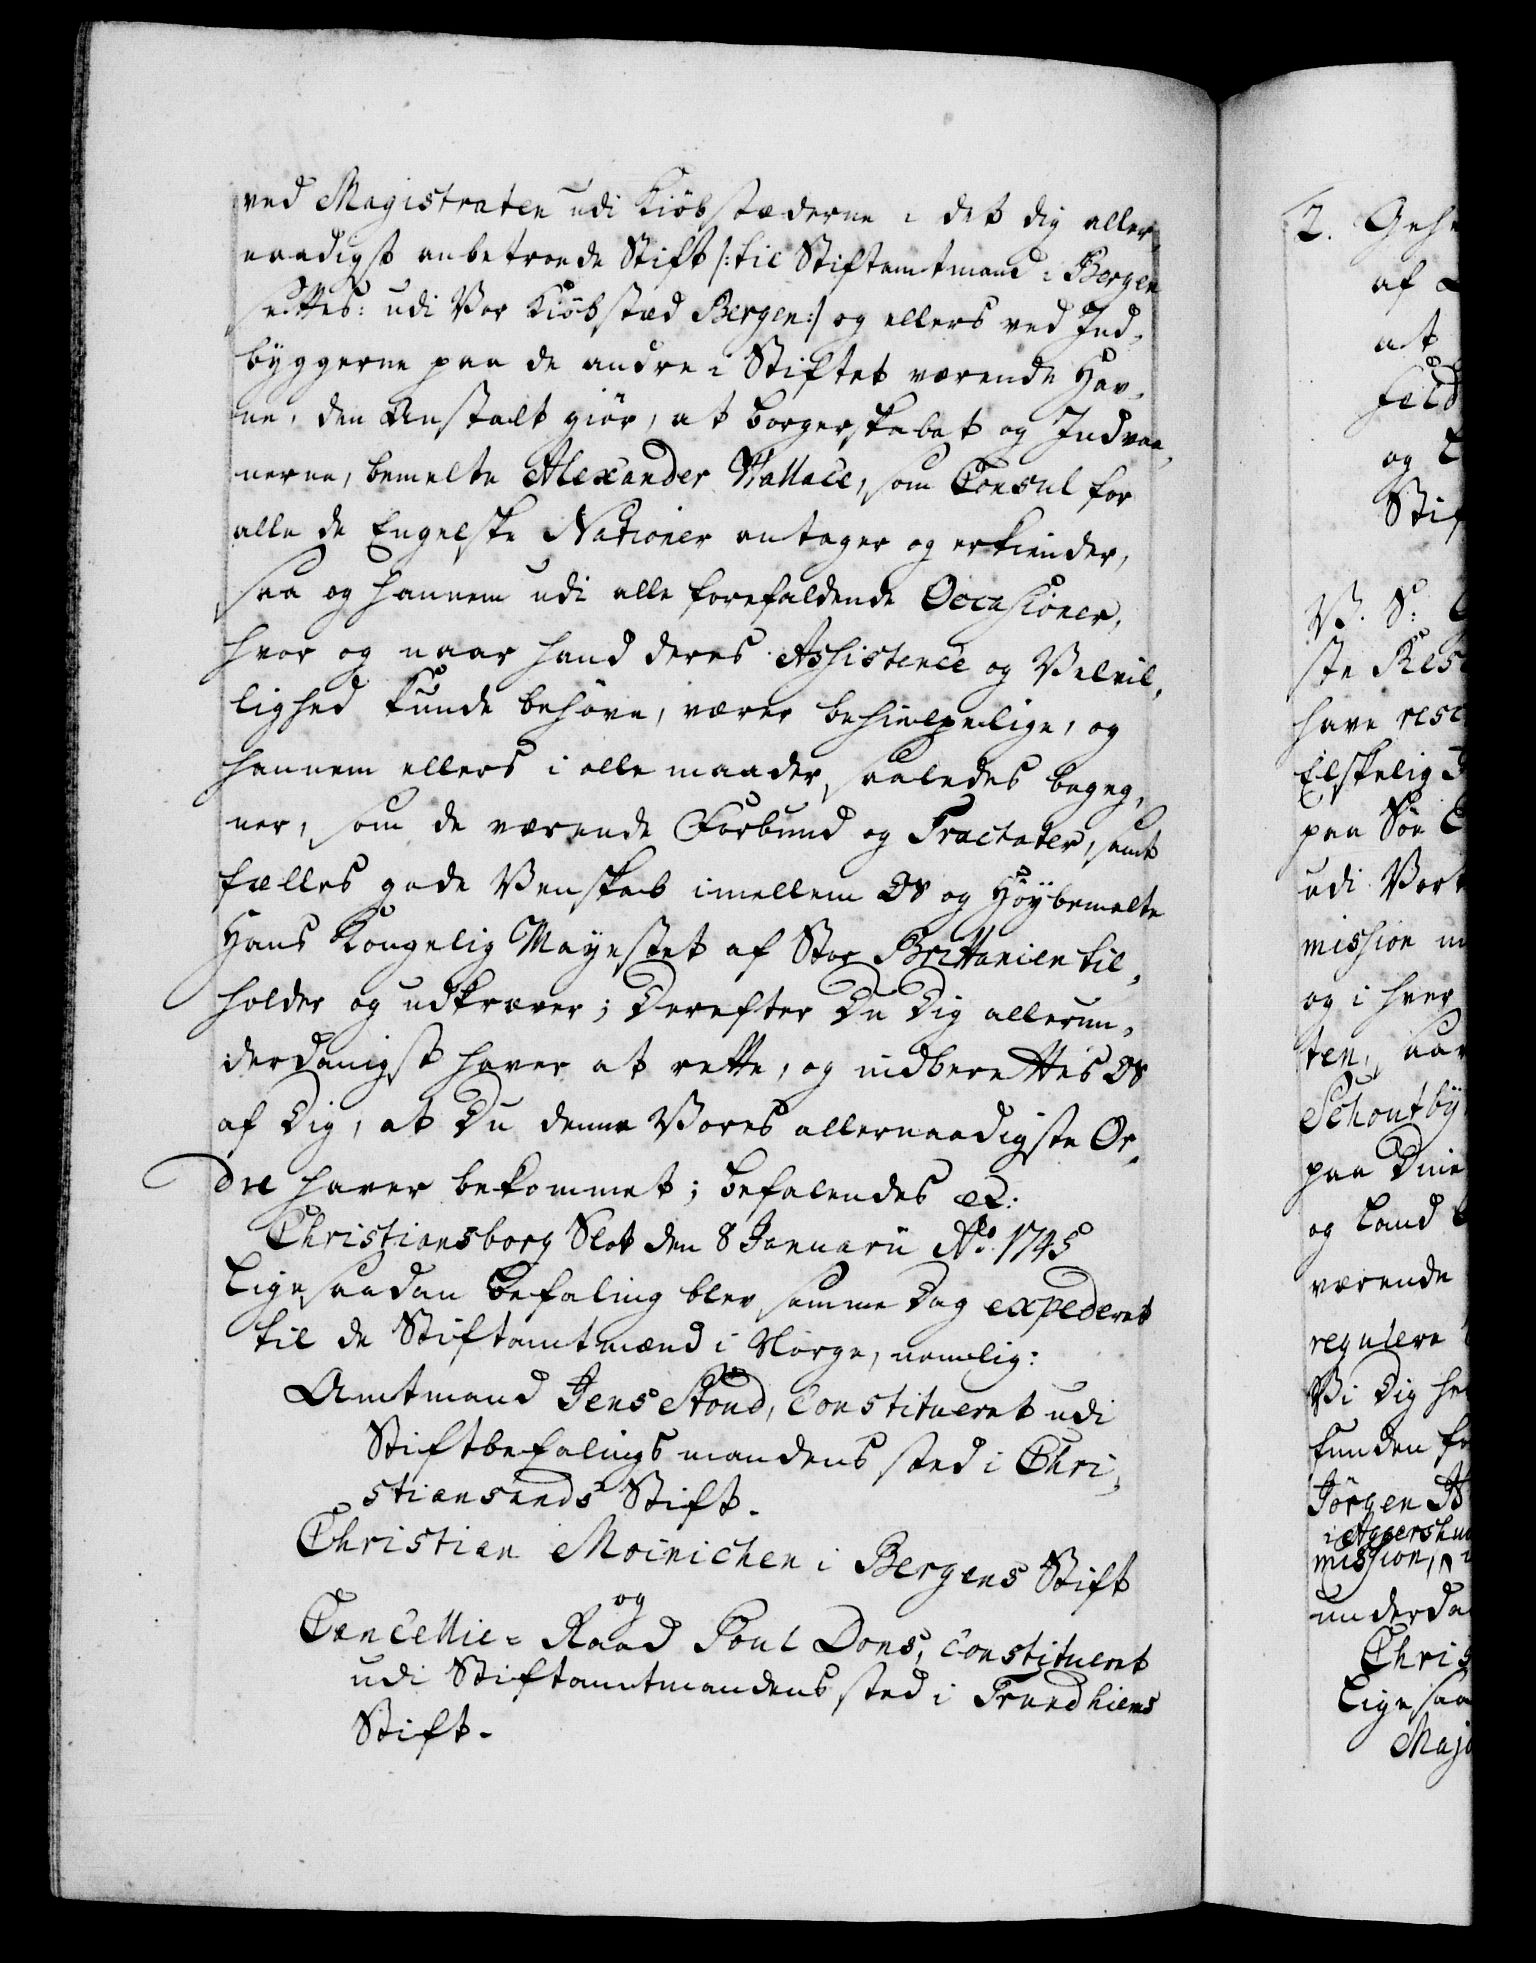 ved Magistraten udi Kiöbstæderne i det dig aller-
naadigst anbetroede Stift /:til Stiftamtmand i Bergen
settes: udi Vor Kiöbstæd Bergen:/ og ellers ved Ind-
byggerne paa de andre i Stiftet værende Hav-
ne, den Anstalt giör, at borgerskabet og Indvaa-
nerne, bemelte Alexander Wallace, som Consul for
alle de Engelske Nationer antager og erkiender,
saa og hannem udi alle forefaldende Occasioner,
hvor og naar hand deres Assistence og Velvil-
lighed kunde behöve, værer behielpelige, og
hannem ellers i alle maader saaledes begeg-
ner, som de værende Forbund og Tractater, samt
fælles gode Venskab imellem OS og Höybemelte
Hans Kongelig Mayestet af Stor Brittanien til-
holder og udkræver; Derefter Du Dig allerun-
derdanigst haver at rette, og indberettes OS
af Dig, at Du denne Vores allernaadigste Or-
dre haver bekommet; befalendes etc:
Christiansborg Slot den 8 Januarii Ao. 1745
Ligesaadan Befaling blev samme Dag expederet
til de Stiftamtmænd i Norge, nemlig:
Amtmand Jens Stoud, Constitueret udi
Stiftbefalingsmandens sted i Chri-
stiansands Stift.
Christian Moinichen i Bergens Stift
og
Cancellie-Raad Poul Dons, Constitueret
udi Stiftamtmandens sted i Trundhiems
Stift.
2. Geh
af
at
feld
og
Stif
V. S:
ste Res
have resc
Elskelig
paa Söe
udi Vort
mission
og i hver
ten,
Schoutby
paa
og Land
værende
regulere
Vi Dig
kunden
Jörgen
i Aggershu
mission,
underda
Chris
Lige saa
Majo